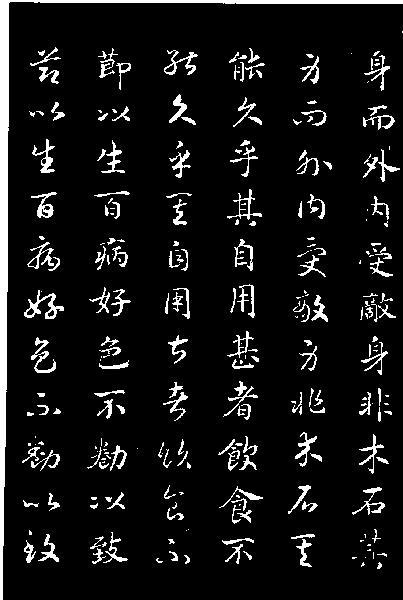 身而外内受敵身非木石其
身而外内受敵身非木石其
能久乎其自用甚者飲食不
能久乎其自用甚者飲食不
節以生百病好色不勌以致
節以生百病好色不勌以致